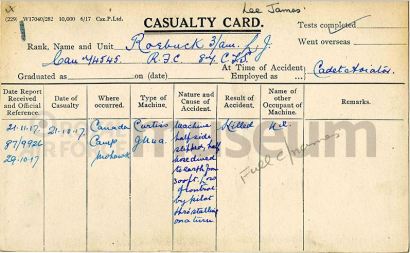 X
(229) W17040/282 10,000 6/17 Cax.P.Ltd.
CASUALTY CARD.
Lee James.
Tests completed
Rank, Name and Unit Roebuck 3/am. L.J.
Went overseas
R.F.C. 84 C.T.S.
At Time of Accident Employed as Cadet Aviator.
Graduated as on (date)
Date Report Received and Official Reference.
Date of Casualty.
Where occurred.
Type of Machine.
Nature and Cause of Accident.
Result of Accident.
Name of other Occupant of Machine.
Remarks.
21.11.17. 21.10.17. Canada Curtiss Machine Killed Nil.
87/9926 Camp JN4a. half side
29.10.17 Mohawk slipped, half
nose dived
to earth from
300ft. Loss
of control
by pilot
thro stalling
on a turn
Full c/names
museum